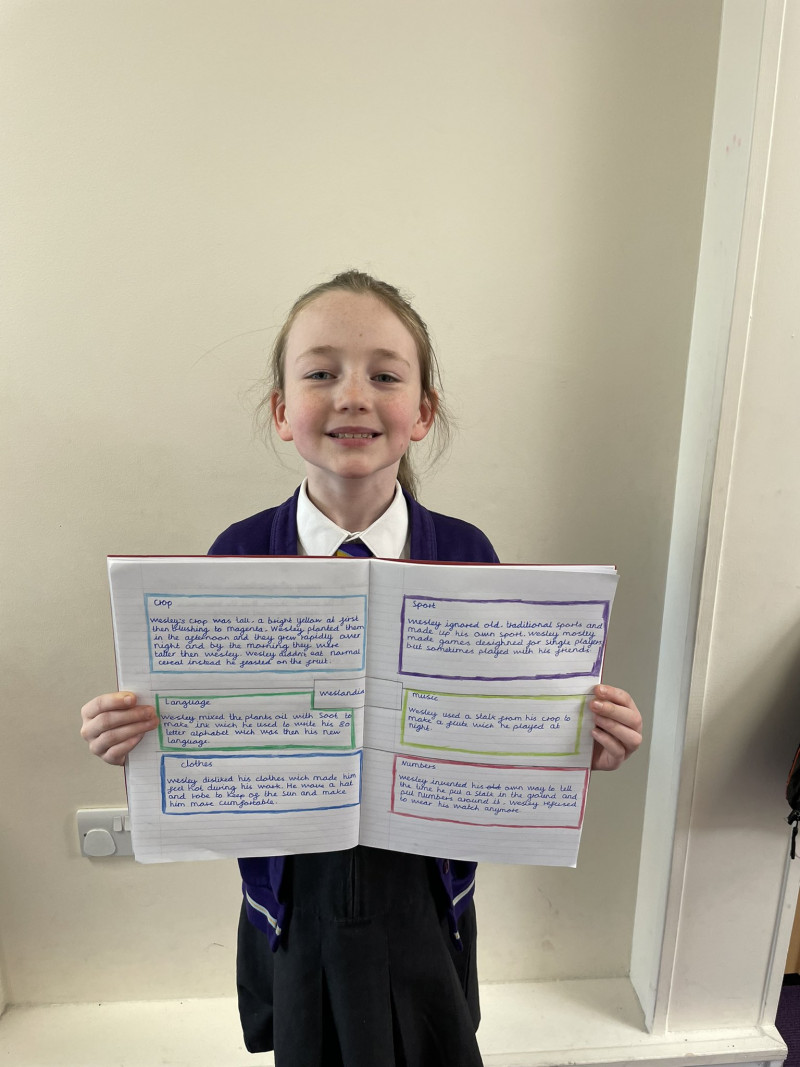 Crop
Wesley's crop was tall - a bright yellow at first
then blushing to magenta. Wesley planted them
in the afternoon and they grew rapidly over
night and by the morning they were
taller then wesley. Wesley didn't eat normal
cereal instead he feasted on the fruit.
Language
Wesley mixed the plants oil with Soot to
make ink wich he used to write his 80
letter alphabet wich was then his new
language.
Clothes
Wesley disliked his clothes wich made him
feel hot during his work. He wove a hat
and robe to keep of the sun and make
him more cumfortable.
Weslandia
Sport
Wesley ignored old, traditional sports and
made up his own sport. Wesley mostly
made games designed for single players
but sometimes played with his friends.
music
Wesley used a stalk from his crop to
make a flute wich he played at
night.
Numbers
Wesley invented his own way to tell
the time he put a stalk in the ground and
put numbers around it. Wesley refused
to wear his watch anymore.